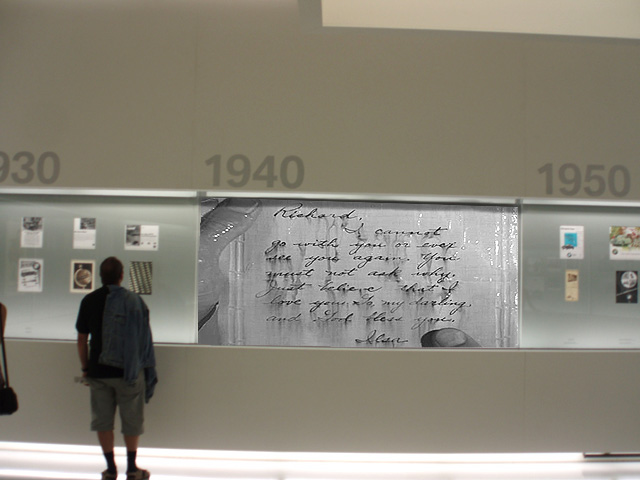 930
1940
1950
Richard,
I cannot
go with you or ever
see you again. You
must not ask why.
Just believe that I
love you. Go my darling,
and God bless you.
Ilsa